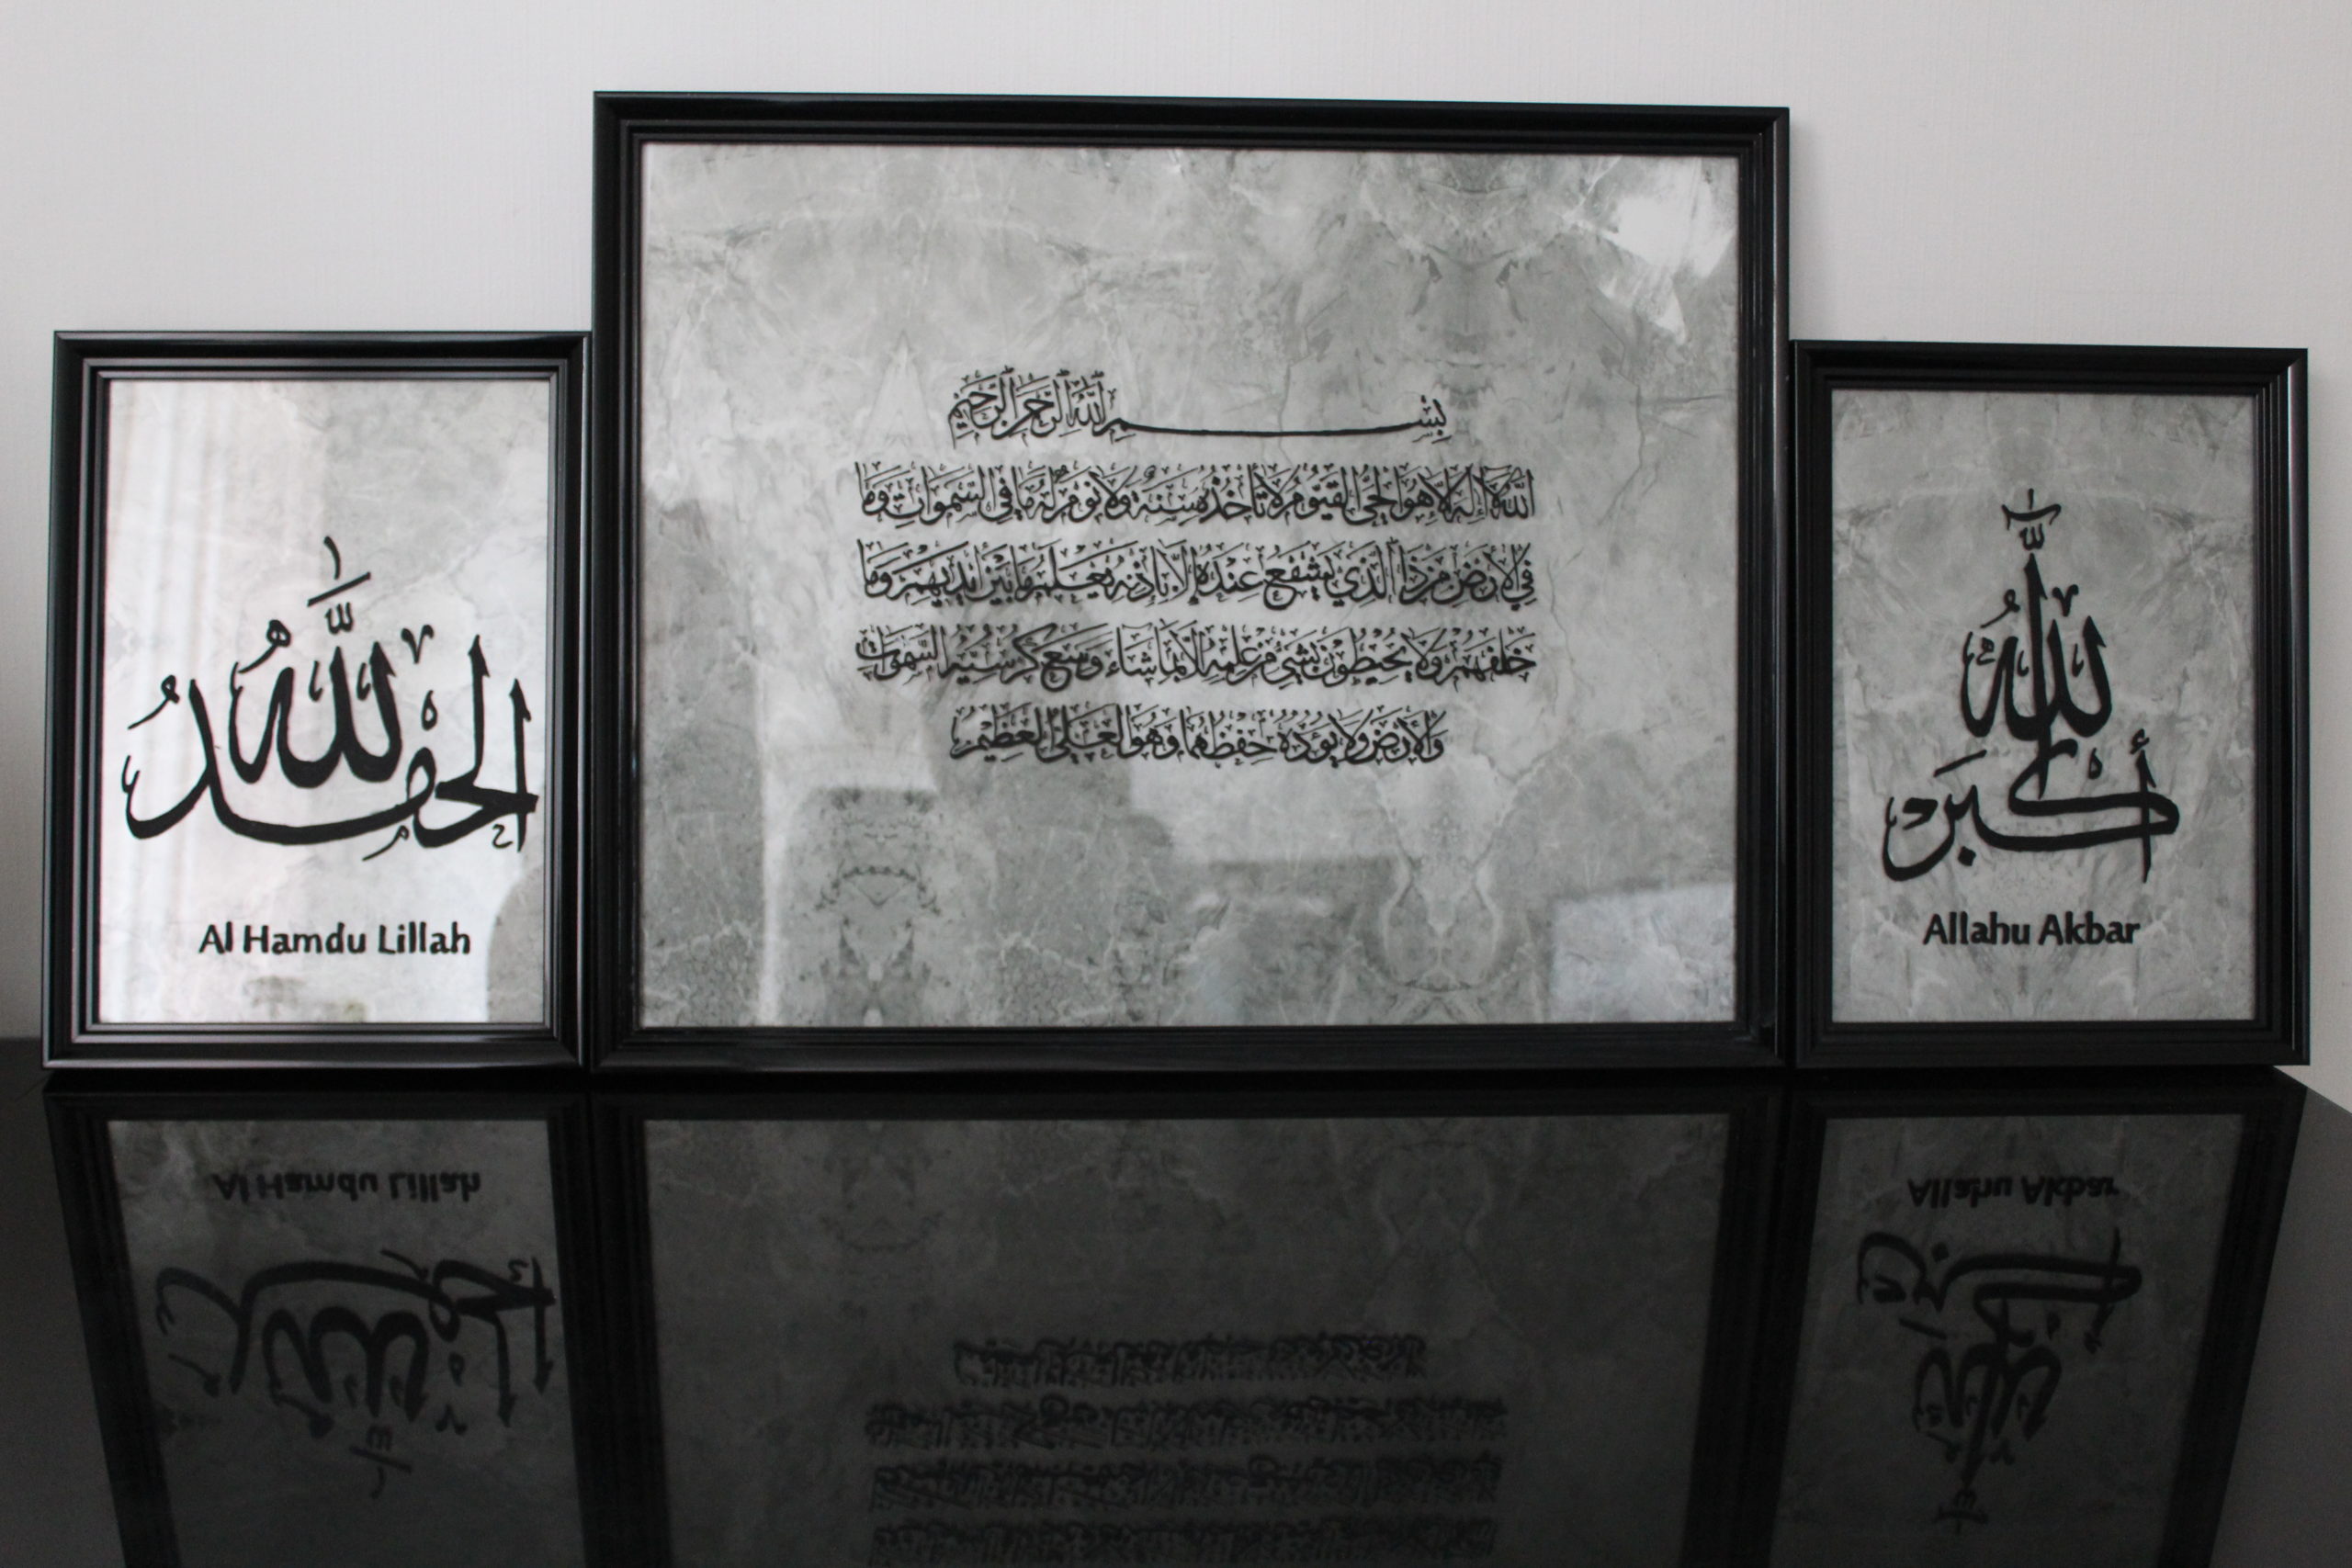 الحمد لله
Al Hamdu Lillah
بسم الله الرحمن الرحيم
الله لا إله إلا هو الحي القيوم لا تأخذه سنة ولا نوم له ما في السموات وما
في الأرض من ذا الذي يشفع عنده إلا بإذنه يعلم ما بين أيديهم وما
خلفهم ولا يحيطون بشيء من علمه إلا بما شاء وسع كرسيه السموات
والأرض ولا يؤده حفظهما وهو العلي العظيم
الله أكبر
Allahu Akbar